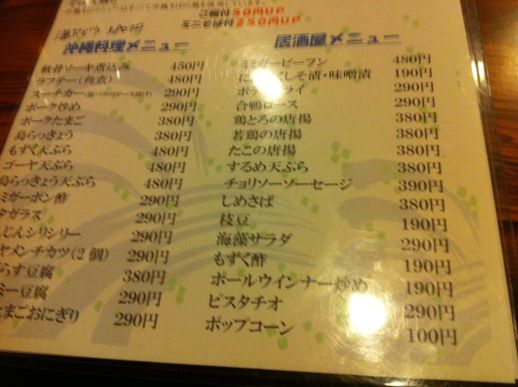 50円UP
250円UP
沖縄料理メニュー
軟骨ソーキ煮込み 450円
ラフテー(角煮) 480円
スーチカー 290円
ポーク炒め 290円
ポークたまご 380円
島らっきょう 380円
もずく天ぷら 480円
ゴーヤ天ぷら 480円
島らっきょう天ぷら 480円
ミガーポン酢 290円
ガラス 290円
じんシリシリー 290円
ヤメンチカツ(2個) 290円
らす豆腐 380円
ミー豆腐 290円
たまごおにぎり 290円
居酒屋メニュー
ミミガービーフン 480円
しそ漬・味噌漬 190円
ポテトフライ 290円
合鴨ロース 290円
鶏とろの唐揚 380円
若鶏の唐揚 380円
たこの唐揚 380円
するめ天ぷら 380円
チョリソーソーセージ 390円
しめさば 380円
枝豆 190円
海藻サラダ 290円
もずく酢 190円
ポールウインナー炒め 190円
ピスタチオ 290円
ポップコーン 100円